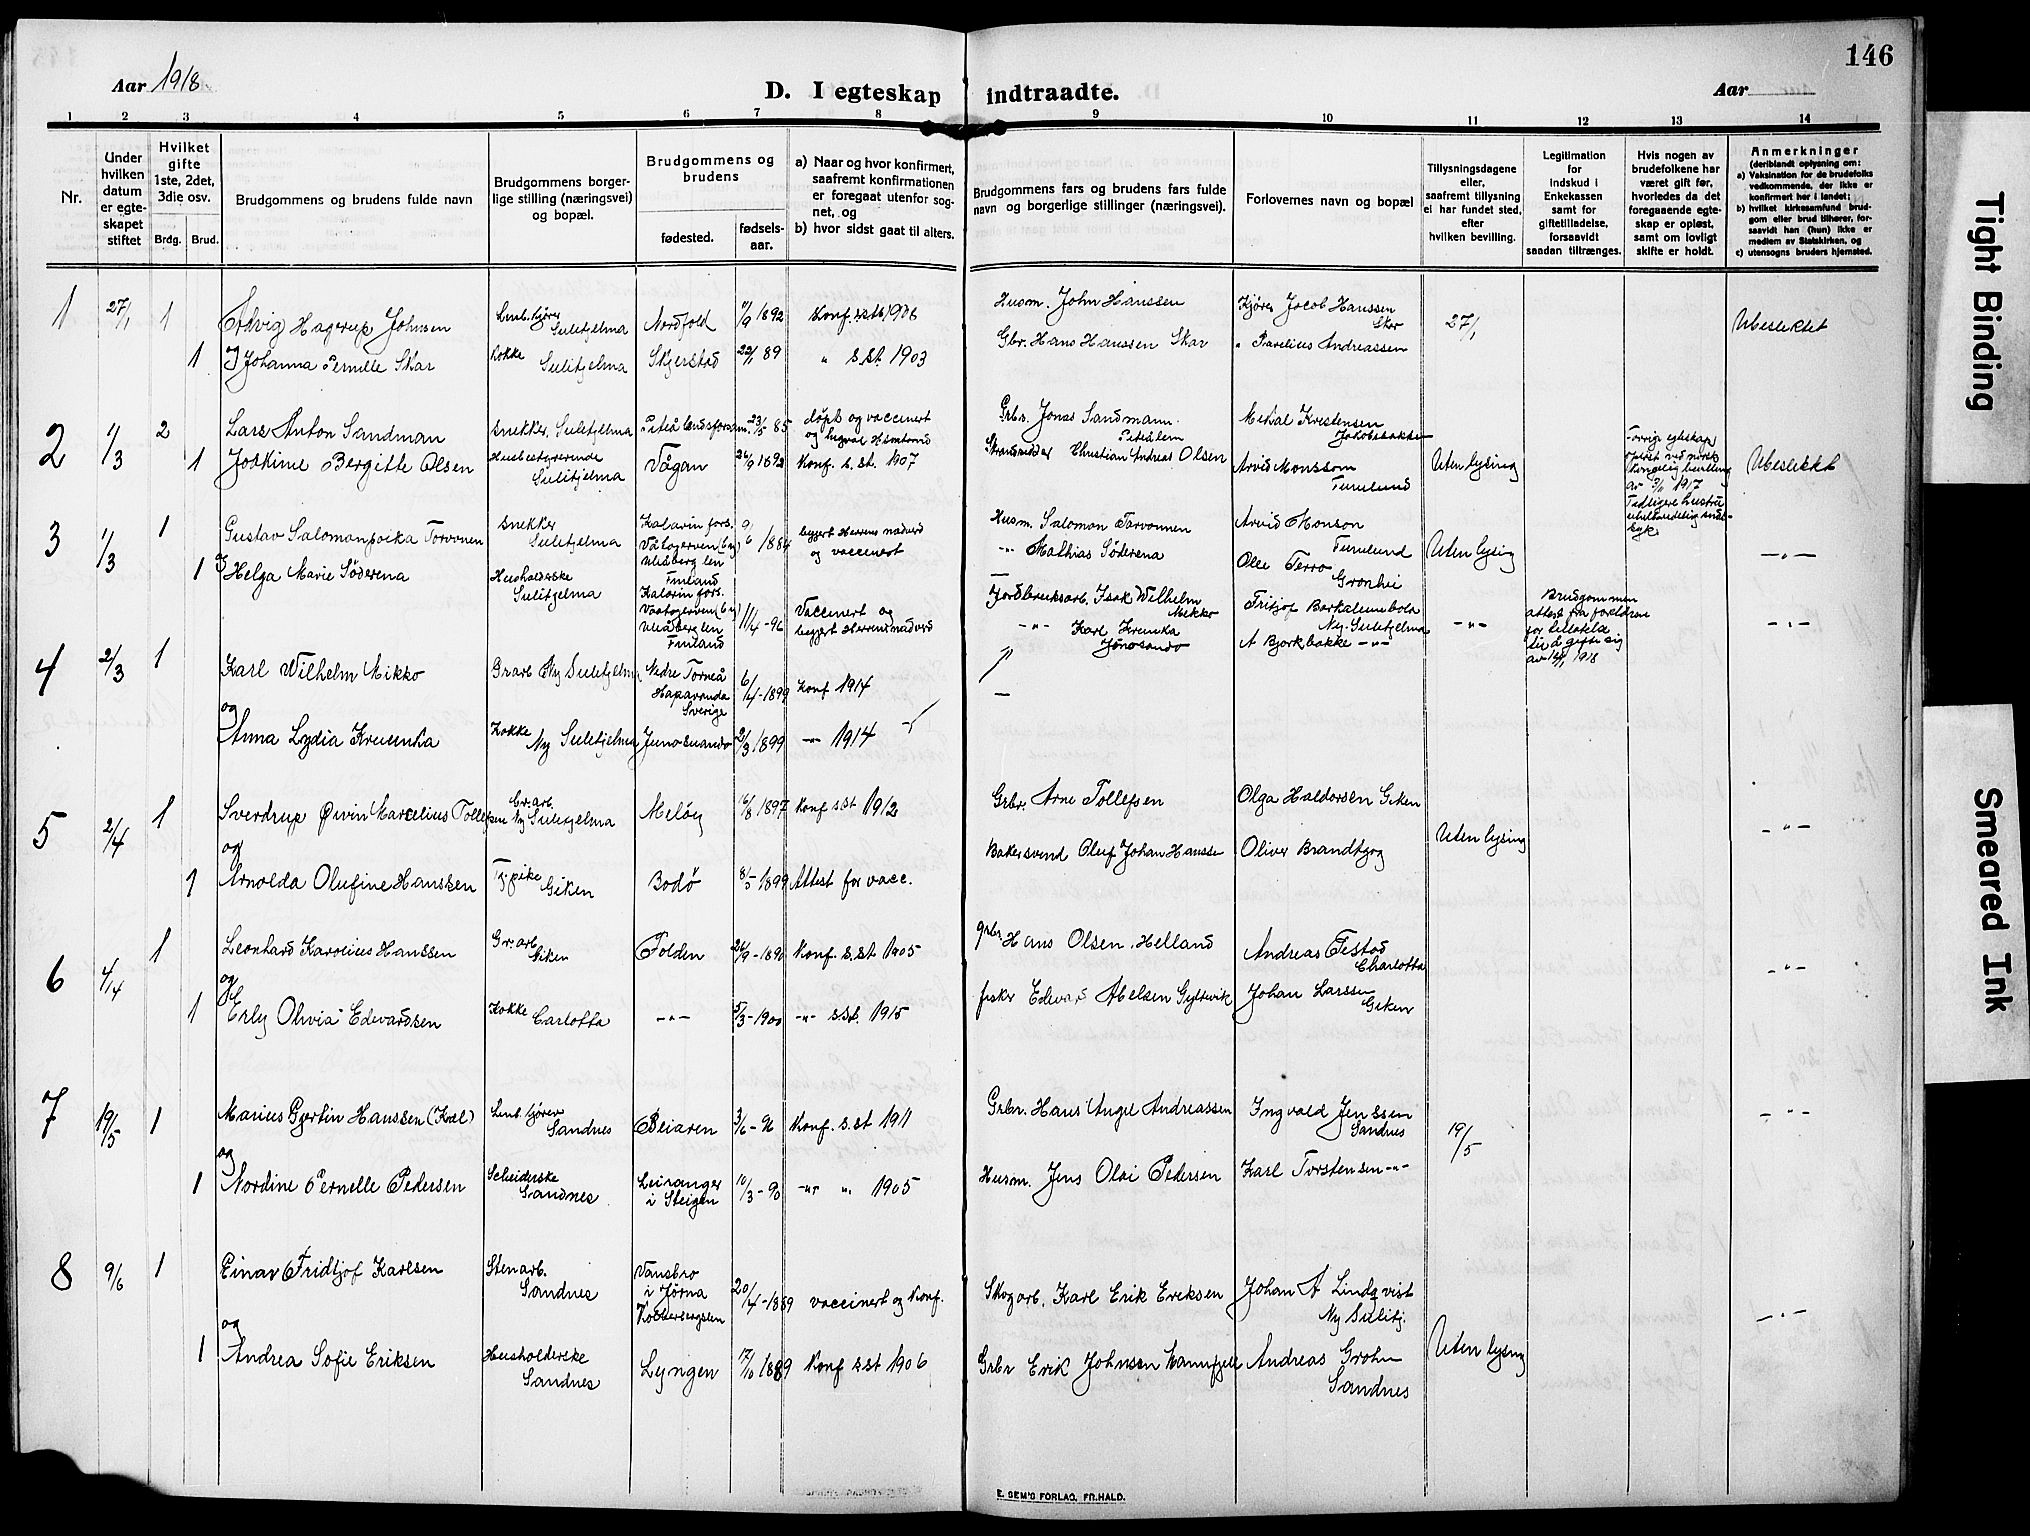 146
Aar 1918
D. I egteskap indtraadte.
Aar
1 2 3 4 5 6 7 8 9 10 11 12 13 14
Nr.
Under hvilken datum er egte-skapet stiftet
Hvilket gifte 1ste, 2det, 3die osv.
Brdg. Brud.
Brudgommens og brudens fulde navn
Brudgommens borger-lige stilling (næringsvei) og bopæl.
Brudgommens og brudens
fødested.
fødsels-aar.
a) Naar og hvor konfirmert, saafremt konfirmationen er foregaat utenfor sog-net, og
b) hvor sidst gaat til alters.
Brudgommens fars og brudens fars fulde navn og borgerlige stillinger (næringsvei).
Forlovernes navn og bopæl
Tillysningsdagene eller, saafremt tillysning ei har fundet sted, efter hvilken bevilling.
Legitimation for indskud i Enkekassen samt for giftetilladelse, forsaavidt saadan tiltrænges.
Hvis nogen av brudefolkene har været gift før, hvorledes da det foregaaende egte-skap er opløst, samt om lovligt skifte er holdt.
Anmerkninger
(deriblandt oplysning om:
a) Vaksination for de brudefolks vedkommende, der ikke er konfirmert her i landet;
b) hvilket kirkesamfund brud-gom eller brud tilhører, for-saavidt han (hun) ikke er medlem av Statskirken, og
c) utensogns bruders hjemsted.
1 27/1 1 Advig Hagerup Johnsen Sulitjelma Nordfold 11/9 1892 Konf. s.st. 1908 Husm. John Hanssen Kjører Jacob Hanssen Skar 27/1 Ubeslektet
1 Johanna Pernille Skar Kokke Sulitjelma Skjerstad 22/1 89 " s.st. 1903 Gbr. Hans Hanssen Skar " Parelius Andreassen
2 1/3 2 Lars Anton Sandman Snekker, Sulitjelma Piteå landsforsam. 23/5 85 døpt og vaccinert og Grbr. Jonas Sandmann. Mekal Kristensen Jakobsbakken
1 Joskine Bergitte Olsen Husbestyrerinde Sulitjelma Vågan 26/9 1892 Konf. s.st. 1907 Christian Andreas Olsen Arvid Monsson Furulund Uten lysing Ubeslektet
Forrige egteskap opløst ved norsk Kongelig bevilling av 3/11 1917
3 1/3 1 Gustav Salomonpoika Torvonen Snekker Sulitjelma 9/6 1884 og vaccinert Husm. Salomon Torvonnen Arvid Monson Furulund Uten lysing -"-
1 Helga Marie Söderena Husholderske Sulitjelma Finland 11/4-96 Vaccinert og -"- Mathias Söderena Ole Ferro Grønli
4 2/3 1 Karl Wilhelm Mikko Grarb Ny Sulitjelma Nedre Torneå Haparanda Sverige 6/4-1899 Konf 1914 Jordbruksarb. Isak Wilhelm Mikko Ny-Sulitjelma -"- -"-
Brudgommen attest fra forældrene for tillatelse til å gifte sig av 12/1 1918
og
Anna Lydia Kruunka Kokke Ny Sulitjelma Junosuando 2/3 1899 -"- 1914 -"- Karl Kruunka Junosando A Bjørkbakke -"-
5 2/4 1 Sverdrup Øivin Marcelius Tollefsen Gr.arb. Ny Sulitjelma Meløy 16/8 1897 Konf s.st 1912 Grbr. Arne Tollefsen Olga Haldorsen Giken Uten lysing -"-
og
1 Arnolda Olufine Hanssen Tj.pike Giken Bodø 8/5-1899 Attest for vacc. Bakersvend Oluf Johan Hanssen Oliver Brandtzog
6 4/14 1 Leonhard Karolius Hanssen Gr.arb Giken Folden 26/9-1890 Konf. s.st 1905 grbr Hans Olsen, Helland Andreas Festad Charlotta -"-
og
1 Erly Olivia Edvardsen Kokke Carlotta -"- 5/3-1900 -"- s.st. 1915 fisker Edvard Abelsen Gyltvik Johan Larssen Giken
7 19/5 1 Marius Gjertin Hanssen (Kvæl) Sandnes Beiaren 3/6-96 Konf. s.st 1911 Grbr. Hans Angel Andreassen Ingvald Jenssen Sandnes 19/5 -"-
og
1 Nordine Pernelle Pedersen Scheiderske Sandnes Leiranger i Steigen 10/3-90 -"- " 1905 Husm. Jens Olai Pedersen Karl Torstensen -"-
8 9/6 1 Einar Fridtjof Karlsen Stenarb. Sandnes Vansbro i Jerna Kobberbergslen 20/4-1889 vaccinert og Konf. Skogarb. Karl Erik Eriksen Johan A Lindqvist Ny Sulitj. -"-
og
1 Andrea Sofie Eriksen Husholderske Sandnes Lyngen 17/10 1889 Konf s.st 1906 Grbr Erik Johnsen Mannfjell Andreas Grohn Sandnes Uten lysing
E. SEM'S FORLAG, FR.HALD.
Tight Binding
Smeared Ink